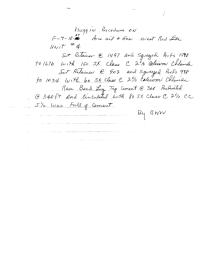 Plugging Procedure on
F-9-10
Unit # 4
Set Retainer @ 1497 and Squeezed Perfs 1598
to 1616 with 150 SX. Class C 2% Calcium Chloride
Set Retainer @ 903 and Squeezed Perfs 938
to 1034 with 60 SX Class C 2% Calcium Chloride
Ran Bond Log Top Cement @ 366 Perforated
@ 340 FT and Circulated with 80 SX Class C 2% CC
5½ Was Full of Cement
By